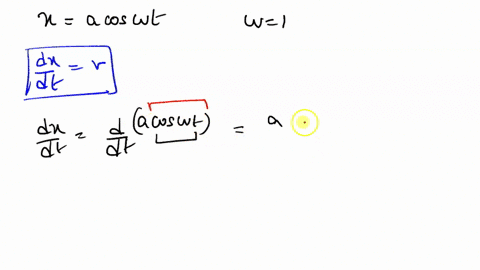 x = a cos wt   w=1
dx/dt = v
dx/dt = d/dt (a cos wt) = a